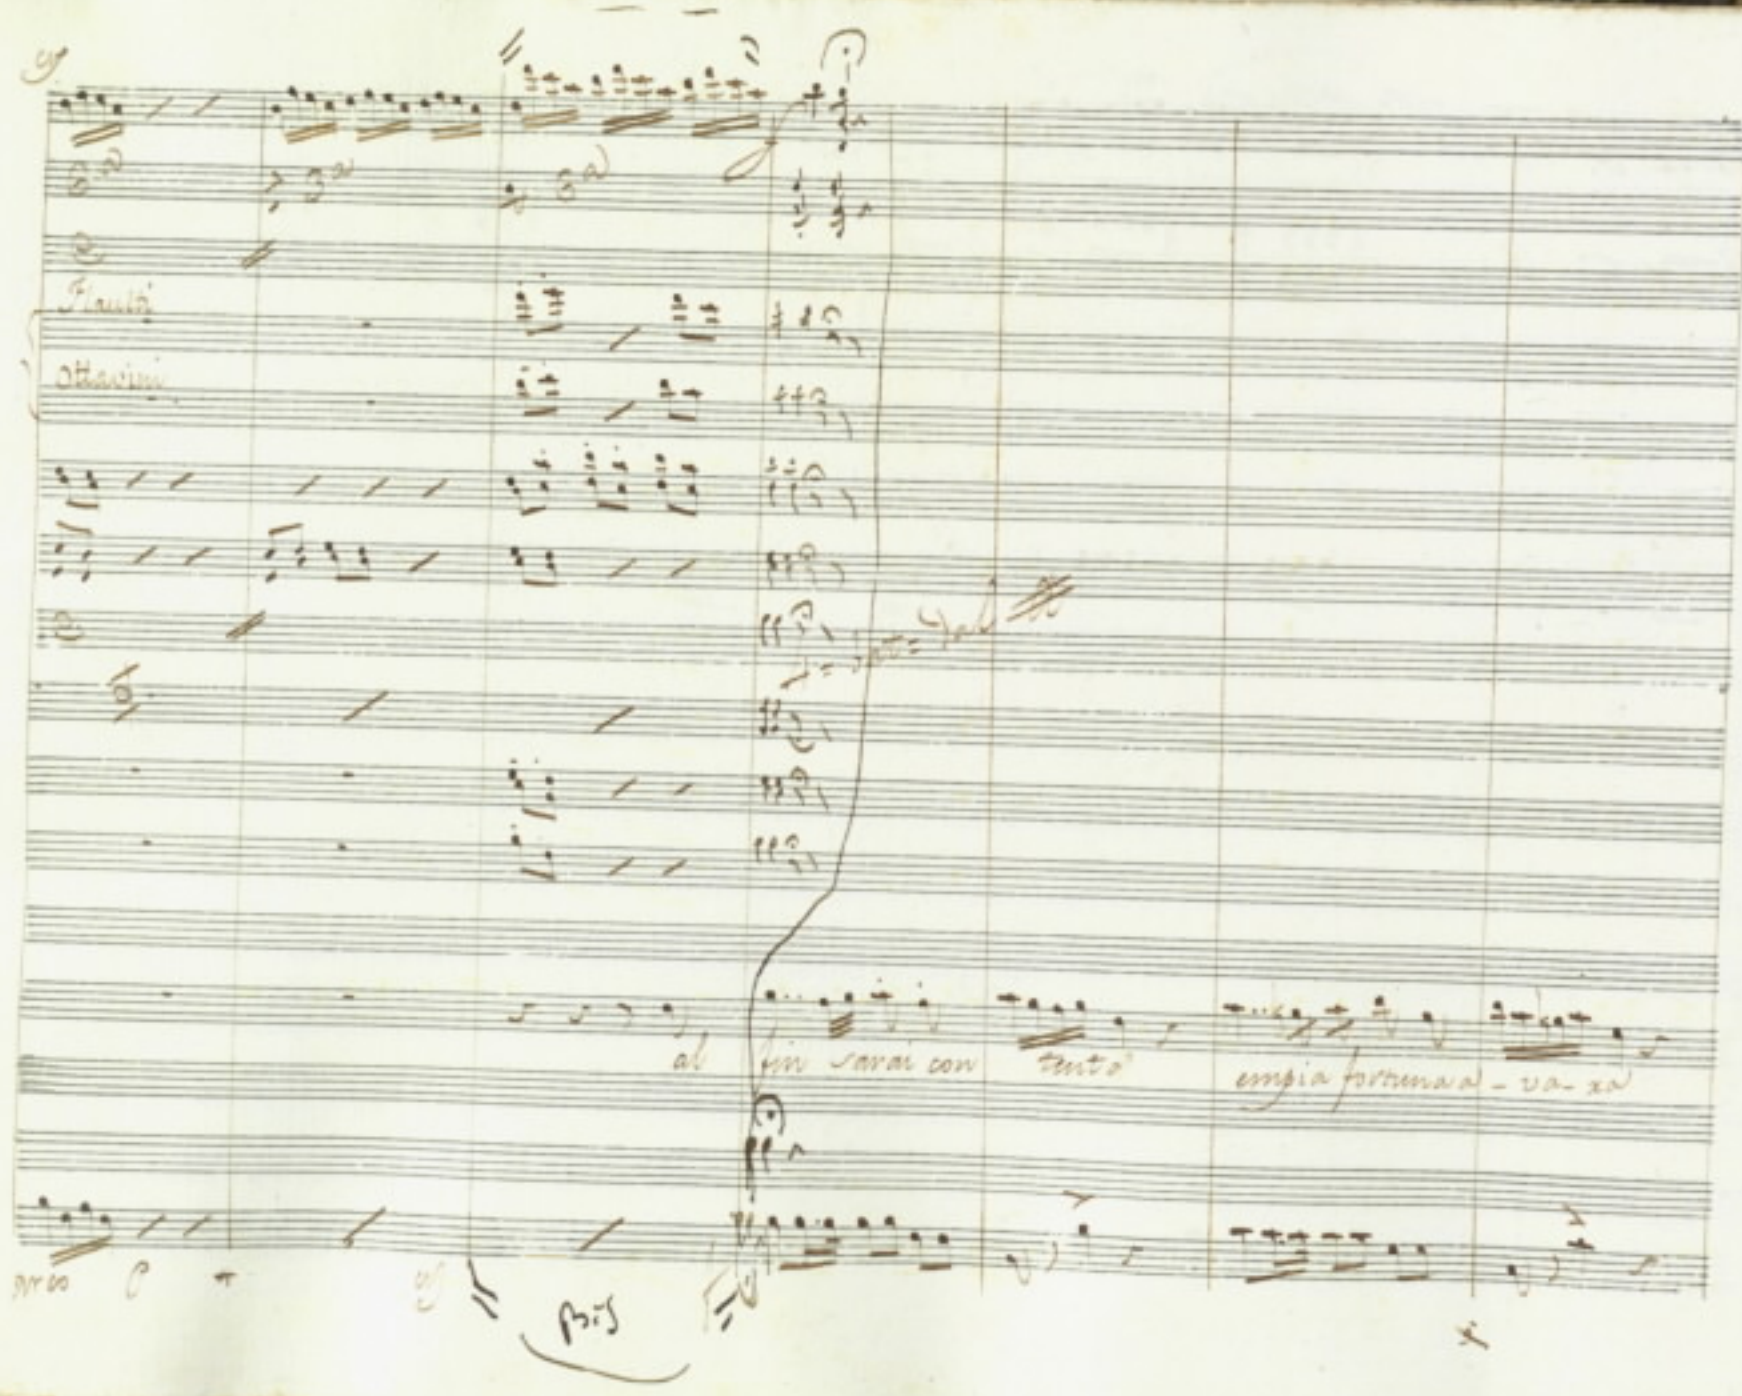 8ª 3ª 3ª
Flauti
Ottavini
al fin sarai con tento empia fortuna a - va - ra
cres
Bis